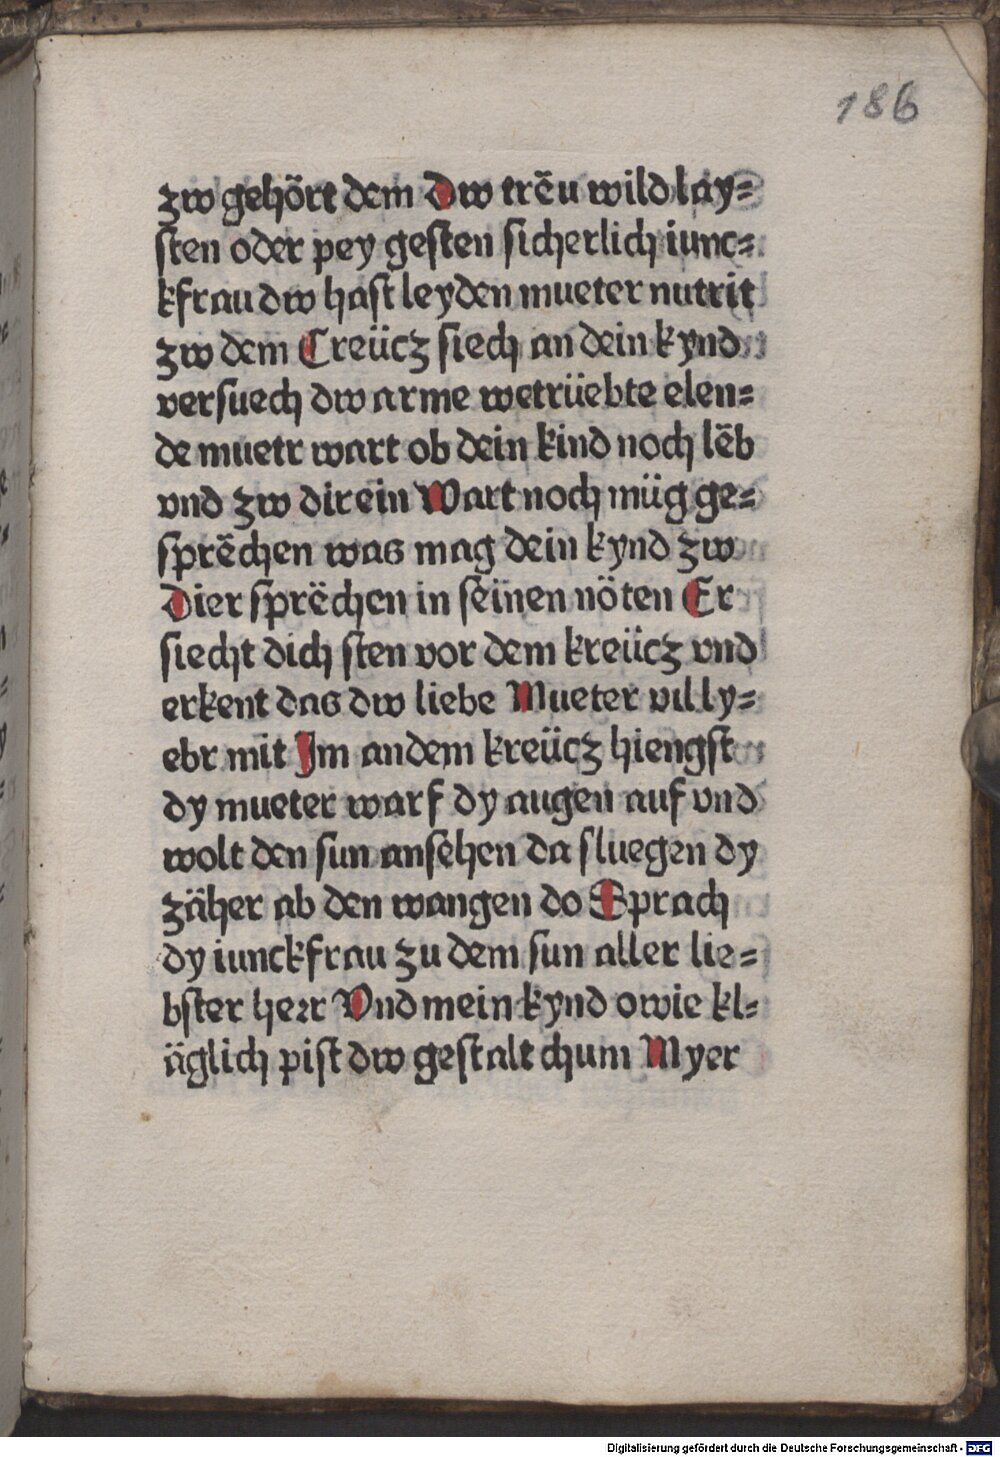 186
zw gehört dem Dw trëu wild lay=
sten oder pey gesten sicherlich iunc=
kfrau dw hast leyden mueter nutrit
zw dem Creücz siech an dein kynd
versuech dw arme wetrüebte elen=
de muetr wart ob dein kind noch lëb
vnd zw dir ein Wart noch müg ge=
sprëchen was mag dein kynd zw
Dier sprëchen in seinen nöten Er
siecht dich sten vor dem kreücz vnd
erkent das dw liebe Mueter vil ly=
ebr mit Im an dem kreücz hiengst
dy mueter warf dy augen auf vnd
wolt den sun ansehen da sluegen dy
zäher ab den wangen do Sprach
dy iunckfrau zu dem sun aller lie=
bster herr Vnd mein kynd owie kl=
äglich pist dw gestalt chum Myer
Digitalisierung gefördert durch die Deutsche Forschungsgemeinschaft - DFG